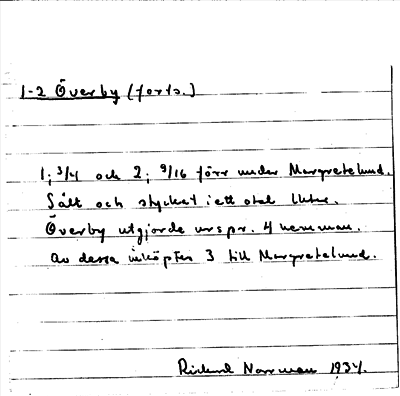 1-2 Överby (forts.)
1; 3/4 och 2; 9/16 förr under Margretelund.
Sålt och stycket i ett otal lhtr.
Överby utgjorde urspr. 4 hemman.
Av dessa inköptes 3 till Margretelund.
Richard Norrman 1934.